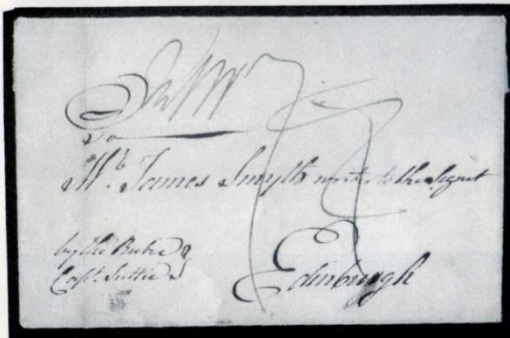 To
Mr. James Smyth writer to the Signet
by the
Capt. Suttie
Edinburgh